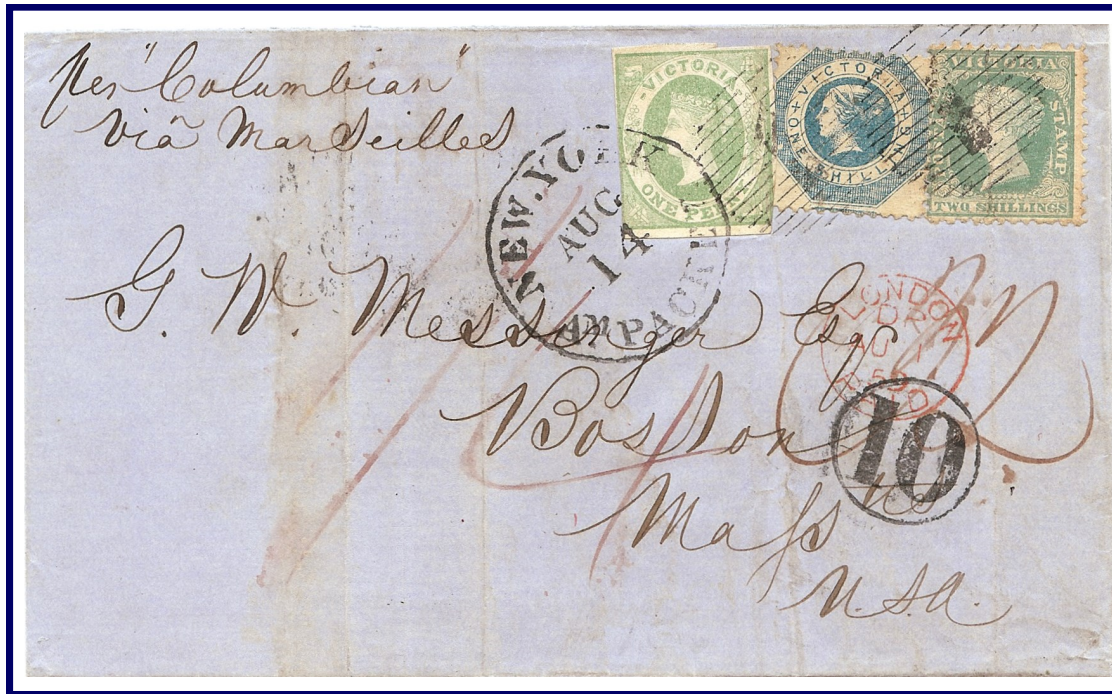 per "Columbian"
via Marseilles
VICTORIA
ONE PENNY
VICTORIA
ONE SHILLING
VICTORIA
STAMP
TWO SHILLINGS
NEW.YORK
AUG
14
AM PACKET
G. W. Messenger Esqr
LONDON
AU
59
PAID
10
Boston
Mass
U.S.A.